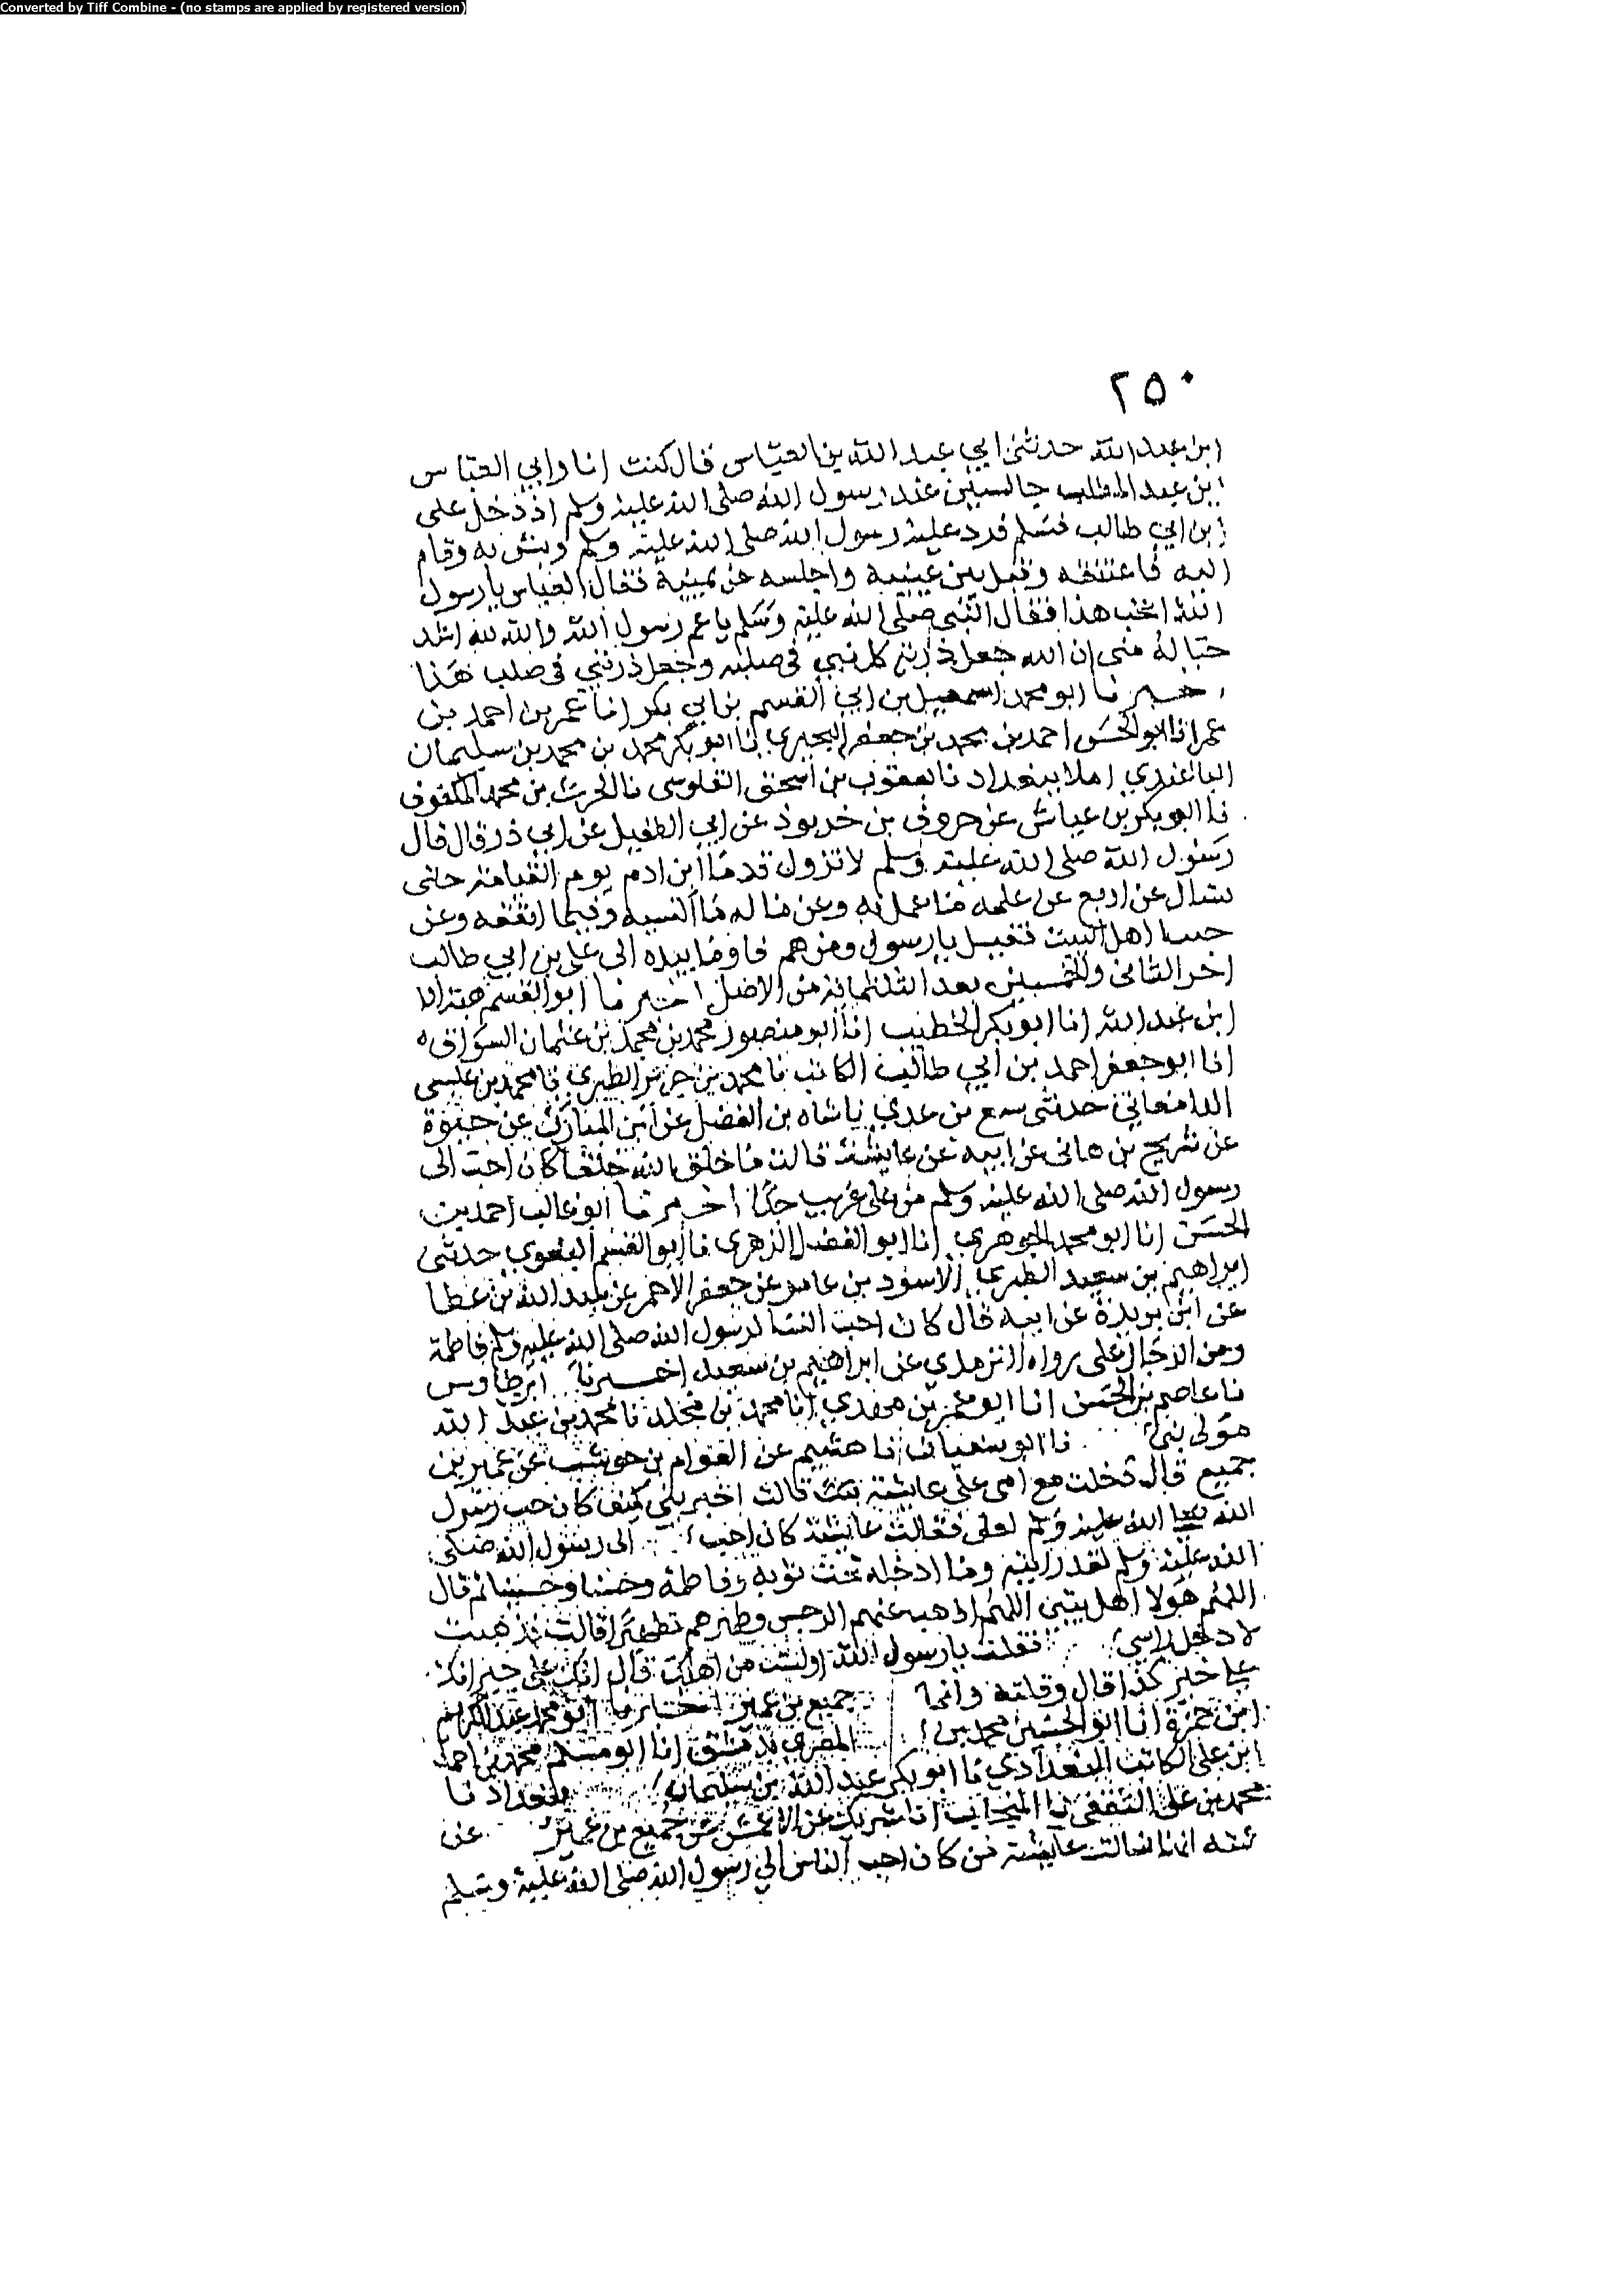 Converted by Tiff Combine - (no stamps are applied by registered version)
٢٥٠
ابن عبد الله حدثني ابي عبد الله بن العباس قال كنت انا وابي العباس
ابن عبد المطلب جالسين عند رسول الله صلى الله عليه وسلم اذ دخل على
ابن ابي طالب فسلم فرد عليه رسول الله صلى الله عليه وسلم وبش به وقام
اليه فاعتنقه وقبل بين عينيه واجلسه عن يمينه فقال العباس يا رسول
الله اتحب هذا فقال النبي صلى الله عليه وسلم يا عم رسول الله والله لله اشد
حبا له مني ان الله جعل ذرية كل نبي في صلبه وجعل ذريتي في صلب هذا
اخبرنا ابو محمد اسمعيل بن ابي القسم بن ابي بكر انا عمر بن احمد بن
عمر انا ابو الحسن احمد بن محمد بن جعفر البحيري انا ابو بكر محمد بن محمد بن سليمان
الباغندي املا ببغداد نا يعقوب بن اسحق القلوسي نا الحرث بن محمد المكفوف
نا ابو بكر بن عياش عن معروف بن خربوذ عن ابي الطفيل عن ابي ذر قال قال
رسول الله صلى الله عليه وسلم لا تزول قدما ابن ادم يوم القيامة حتى
يسال عن اربع عن علمه ما عمل به وعن ماله مما اكتسبه وفيما انفقه وعن
حب اهل البيت فقيل يا رسول ومن هم فاوما بيده الى علي بن ابي طالب
اخر الثاني والخمسين بعد الثلثمائة من الاصل اخبرنا ابو القسم هبة الله
ابن عبد الله انا ابو بكر الخطيب انا ابو منصور محمد بن محمد بن عثمان السواق
انا ابو جعفر احمد بن ابي طالب الكاتب نا محمد بن جرير الطبري نا محمد بن عيسى
الدامغاني حدثني بن عدي نا شاه بن الفضل عن ابن المبارك عن حيوة
عن شريح بن هاني عن ابيه عن عايشة قالت ما خلق الله خلقا كان احب الى
رسول الله صلى الله عليه وسلم من علي غريب جدا اخبرنا ابو غالب احمد بن
الحسن انا ابو محمد الجوهري انا ابو الفضل الزهري نا ابو القسم البغوي حدثني
ابراهيم بن سعيد الطبري الاسود بن عامر عن جعفر الاحمر عن عبد الله بن عطا
عن ابن بريدة عن ابيه قال كان احب النسا لرسول الله صلى الله عليه وسلم فاطمة
ومن الرجال علي رواه الترمذي عن ابراهيم بن سعيد اخبرنا ابن طاوس
نا عاصم بن الحسن انا ابو عمر بن مهدي انا محمد بن مخلد نا محمد بن عبد الله
مولى بني نا ابو سفيان نا هشيم عن العوام بن حوشب عن عمير بن
جميع قال دخلت مع امي على عايشة قالت اخبريني كيف كان حب رسول
الله صلى الله عليه وسلم لعلي فقالت عايشة كان احب الى رسول الله صلى
الله عليه وسلم لقد رايته وما ادخله تحت ثوبه وفاطمة وحسنا وحسينا ثم قال
اللهم هولا اهل بيتي اللهم اذهب عنهم الرجس وطهرهم تطهيرا قالت فذهبت
لادخل راسي فقلت يا رسول الله اولست من اهلك قال انك على خير انك
على خير كذا قال وقلته وانما جميع بن عمير اخبرنا ابو محمد عبد الكريم
ابن حمزة انا ابو الحسين محمد بن المصري بدمشق انا ابو مسلم محمد بن احمد
ابن علي الكاتب البغدادي نا ابو بكر عبد الله بن سليمان ببغداد نا
محمد بن علي الثقفي نا المنجاب انا شريك عن الاعمش عن جميع بن عمير عن
عمته انها سالت عايشة من كان احب الناس الى رسول الله صلى الله عليه وسلم